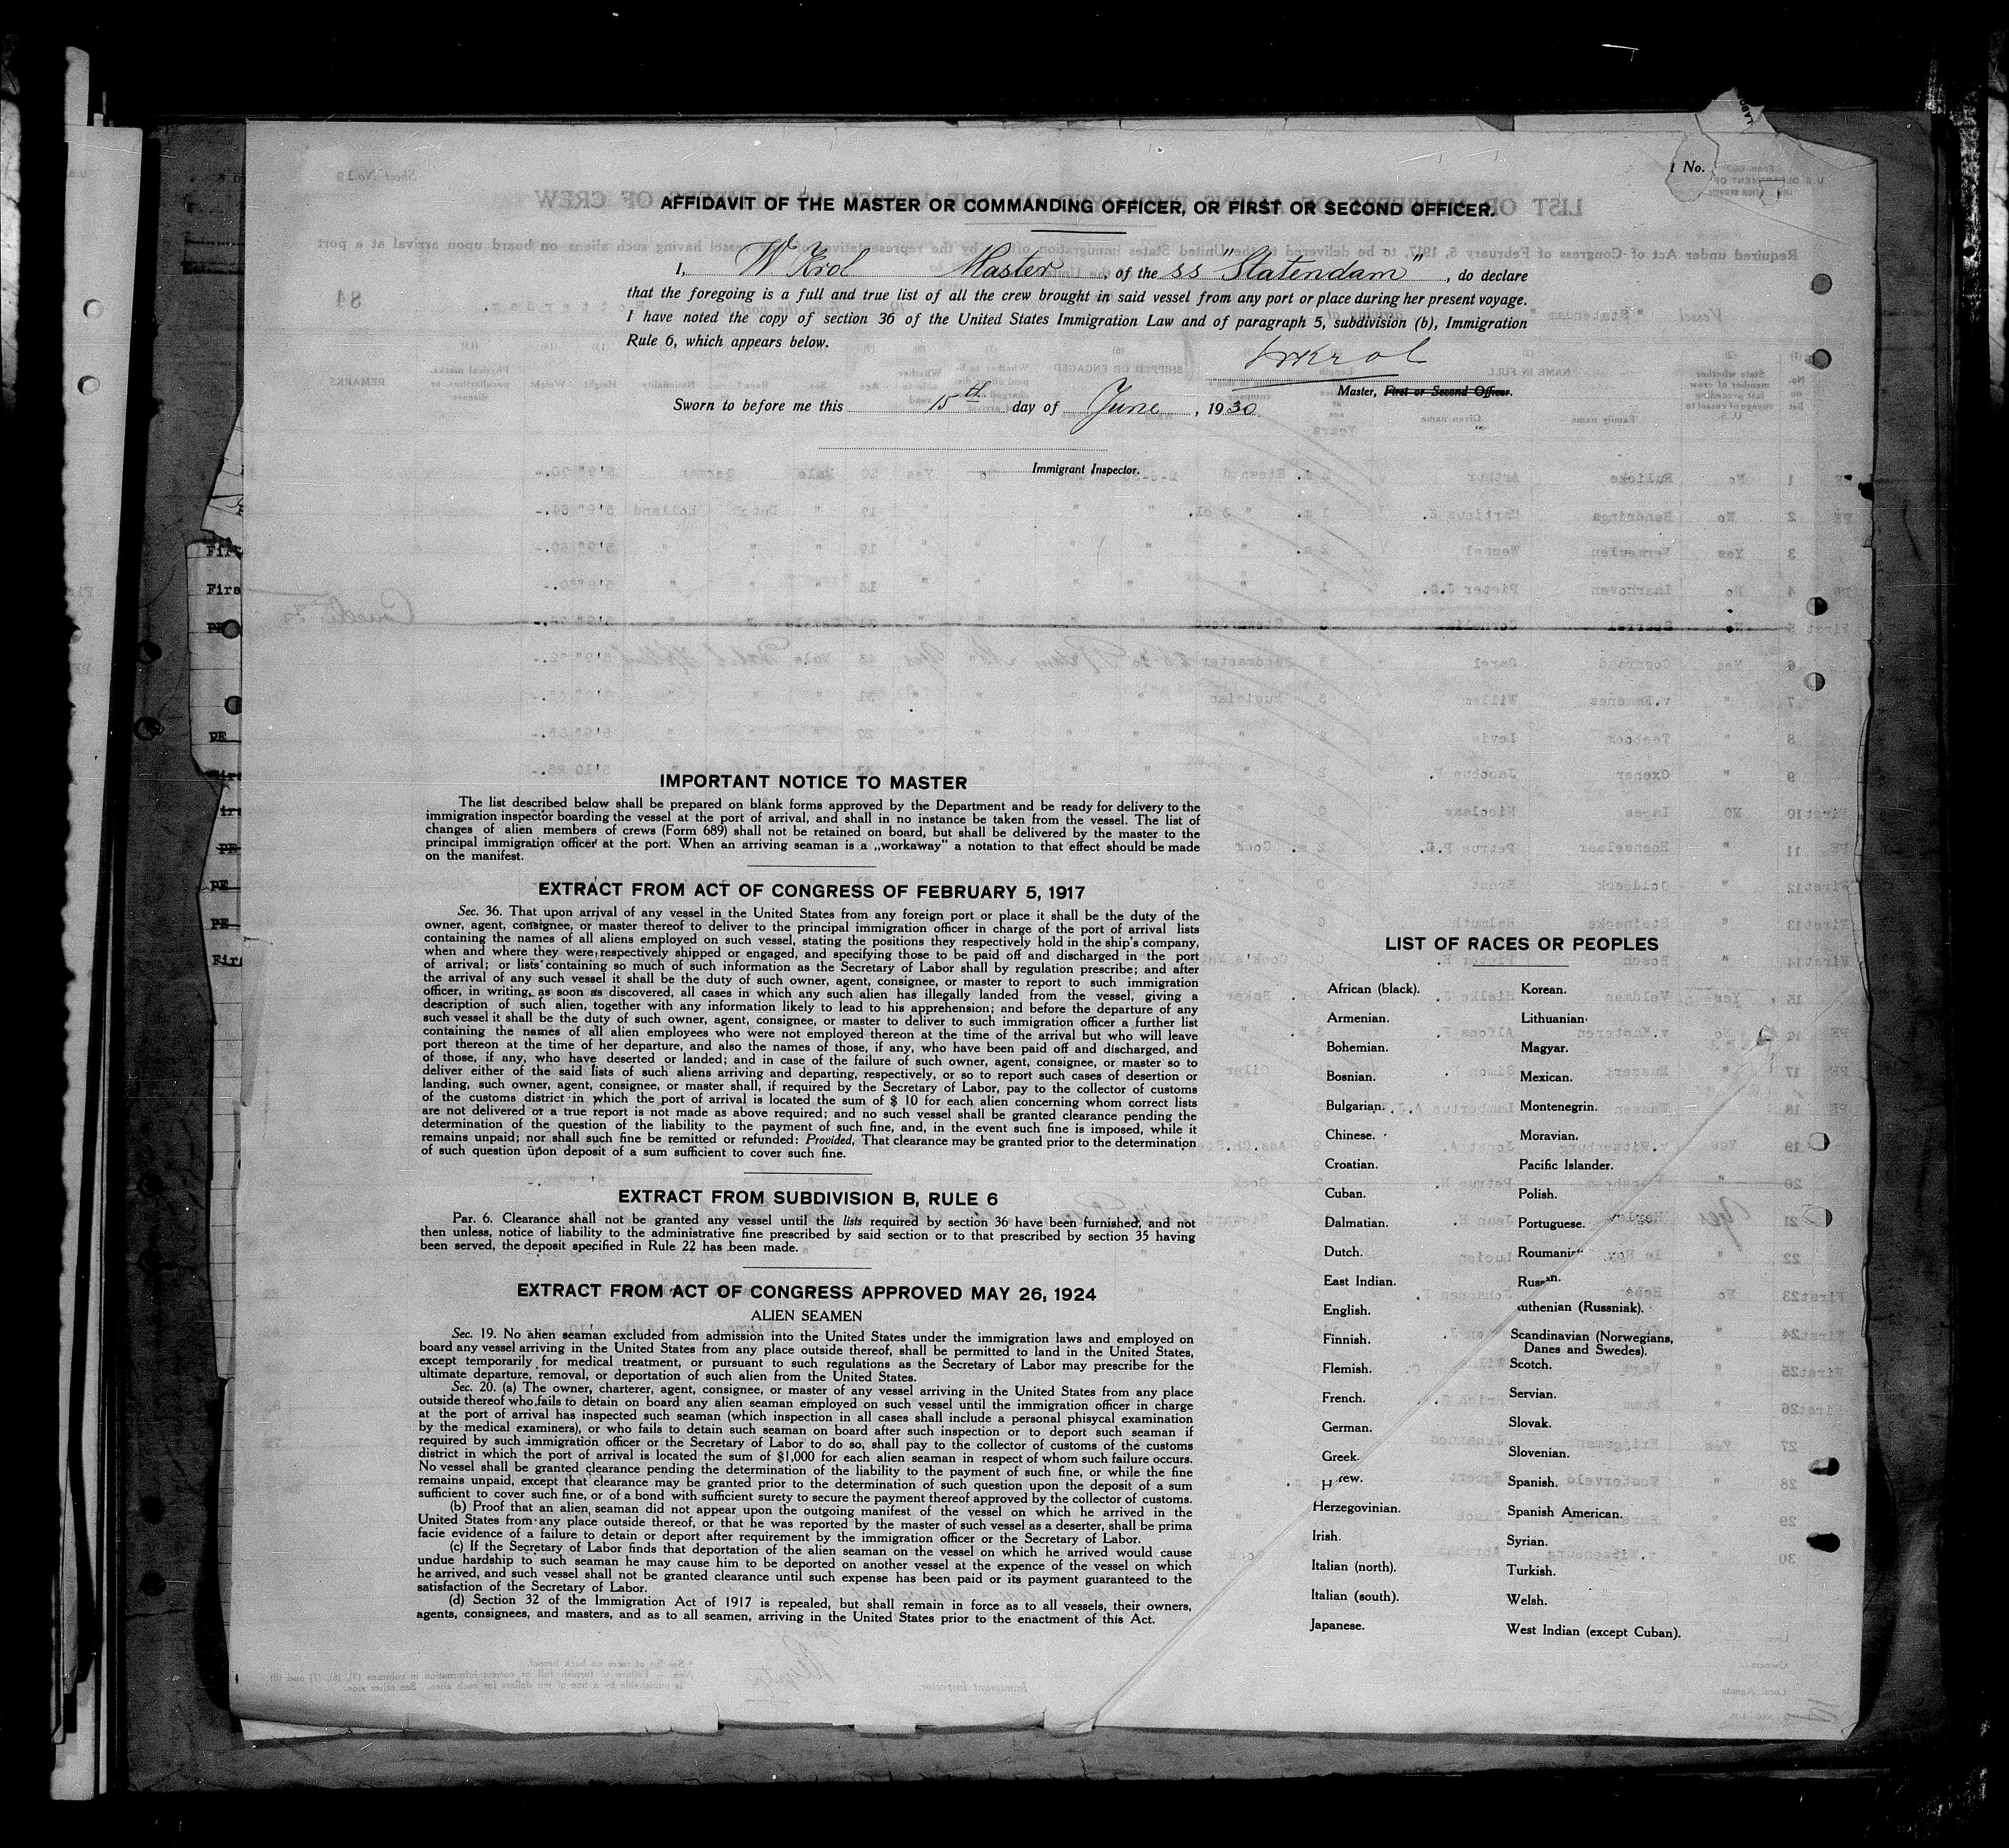 1 No.
AFFIDAVIT OF THE MASTER OR COMMANDING OFFICER, OR FIRST OR SECOND OFFICER.
I, W. Krol Master of the ss "Statendam", do declare
that the foregoing is a full and true list of all the crew brought in said vessel from any port or place during her present voyage.
I have noted the copy of section 36 of the United States Immigration Law and of paragraph 5, subdivision (b), Immigration
Rule 6, which appears below.
W Krol
Master, First or Second Officer.
Sworn to before me this 15th day of June, 1930
Immigrant Inspector.
IMPORTANT NOTICE TO MASTER
The list described below shall be prepared on blank forms approved by the Department and be ready for delivery to the
immigration inspector boarding the vessel at the port of arrival, and shall in no instance be taken from the vessel. The list of
changes of alien members of crews (Form 689) shall not be retained on board, but shall be delivered by the master to the
principal immigration officer at the port. When an arriving seaman is a „workaway" a notation to that effect should be made
on the manifest.
EXTRACT FROM ACT OF CONGRESS OF FEBRUARY 5, 1917
Sec. 36. That upon arrival of any vessel in the United States from any foreign port or place it shall be the duty of the
owner, agent, consignee, or master thereof to deliver to the principal immigration officer in charge of the port of arrival lists
containing the names of all aliens employed on such vessel, stating the positions they respectively hold in the ship's company,
when and where they were respectively shipped or engaged, and specifying those to be paid off and discharged in the port
of arrival; or lists containing so much of such information as the Secretary of Labor shall by regulation prescribe; and after
the arrival of any such vessel it shall be the duty of such owner, agent, consignee, or master to report to such immigration
officer, in writing, as soon as discovered, all cases in which any such alien has illegally landed from the vessel, giving a
description of such alien, together with any information likely to lead to his apprehension; and before the departure of any
such vessel it shall be the duty of such owner, agent, consignee, or master to deliver to such immigration officer a further list
containing the names of all alien employees who were not employed thereon at the time of the arrival but who will leave
port thereon at the time of her departure, and also the names of those, if any, who have been paid off and discharged, and
of those, if any, who have deserted or landed; and in case of the failure of such owner, agent, consignee, or master so to
deliver either of the said lists of such aliens arriving and departing, respectively, or so to report such cases of desertion or
landing, such owner, agent, consignee, or master shall, if required by the Secretary of Labor, pay to the collector of customs
of the customs district in which the port of arrival is located the sum of $ 10 for each alien concerning whom correct lists
are not delivered or a true report is not made as above required; and no such vessel shall be granted clearance pending the
determination of the question of the liability to the payment of such fine, and, in the event such fine is imposed, while it
remains unpaid; nor shall such fine be remitted or refunded: Provided, That clearance may be granted prior to the determination
of such question upon deposit of a sum sufficient to cover such fine.
EXTRACT FROM SUBDIVISION B, RULE 6
Par. 6. Clearance shall not be granted any vessel until the lists required by section 36 have been furnished, and not
then unless, notice of liability to the administrative fine prescribed by said section or to that prescribed by section 35 having
been served, the deposit specified in Rule 22 has been made.
EXTRACT FROM ACT OF CONGRESS APPROVED MAY 26, 1924
ALIEN SEAMEN
Sec. 19. No alien seaman excluded from admission into the United States under the immigration laws and employed on
board any vessel arriving in the United States from any place outside thereof, shall be permitted to land in the United States,
except temporarily for medical treatment, or pursuant to such regulations as the Secretary of Labor may prescribe for the
ultimate departure, removal, or deportation of such alien from the United States.
Sec. 20. (a) The owner, charterer, agent, consignee, or master of any vessel arriving in the United States from any place
outside thereof who fails to detain on board any alien seaman employed on such vessel until the immigration officer in charge
at the port of arrival has inspected such seaman (which inspection in all cases shall include a personal phisycal examination
by the medical examiners), or who fails to detain such seaman on board after such inspection or to deport such seaman if
required by such immigration officer or the Secretary of Labor to do so, shall pay to the collector of customs of the customs
district in which the port of arrival is located the sum of $1,000 for each alien seaman in respect of whom such failure occurs.
No vessel shall be granted clearance pending the determination of the liability to the payment of such fine, or while the fine
remains unpaid, except that clearance may be granted prior to the determination of such question upon the deposit of a sum
sufficient to cover such fine, or of a bond with sufficient surety to secure the payment thereof approved by the collector of customs.
(b) Proof that an alien seaman did not appear upon the outgoing manifest of the vessel on which he arrived in the
United States from any place outside thereof, or that he was reported by the master of such vessel as a deserter, shall be prima
facie evidence of a failure to detain or deport after requirement by the immigration officer or the Secretary of Labor.
(c) If the Secretary of Labor finds that deportation of the alien seaman on the vessel on which he arrived would cause
undue hardship to such seaman he may cause him to be deported on another vessel at the expence of the vessel on which
he arrived, and such vessel shall not be granted clearance until such expense has been paid or its payment guaranteed to the
satisfaction of the Secretary of Labor.
(d) Section 32 of the Immigration Act of 1917 is repealed, but shall remain in force as to all vessels, their owners,
agents, consignees, and masters, and as to all seamen, arriving in the United States prior to the enactment of this Act.
LIST OF RACES OR PEOPLES
African (black).
Armenian.
Bohemian.
Bosnian.
Bulgarian.
Chinese.
Croatian.
Cuban.
Dalmatian.
Dutch.
East Indian.
English.
Finnish.
Flemish.
French.
German.
Greek.
H rew.
Herzegovinian.
Irish.
Italian (north).
Italian (south).
Japanese.
Korean.
Lithuanian.
Magyar.
Mexican.
Montenegrin.
Moravian.
Pacific Islander.
Polish.
Portuguese.
Roumania
Russian.
uthenian (Russniak).
Scandinavian (Norwegians,
Danes and Swedes).
Scotch.
Servian.
Slovak.
Slovenian.
Spanish.
Spanish American.
Syrian.
Turkish.
Welsh.
West Indian (except Cuban).